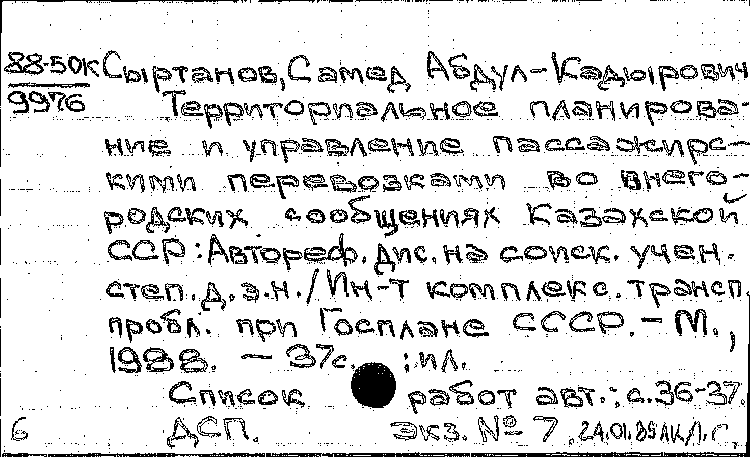 88-50к Сыртанов, Самед Абдул-Кадырович
9976 Территориальное планирова-
ние и управление пассажирс-
кими перевозками во внего-
родских сообщениях Казахской
ССР: Автореф. дис. на соиск. учен.
степ. д.э.н./Ин-т комплекс. трансп.
пробл. при Госплане СССР. - М.,
1988. - 37с. : ил.
Список работ авт.: с.36-37.
6 ДСП. Экз. № 7 24.01.89